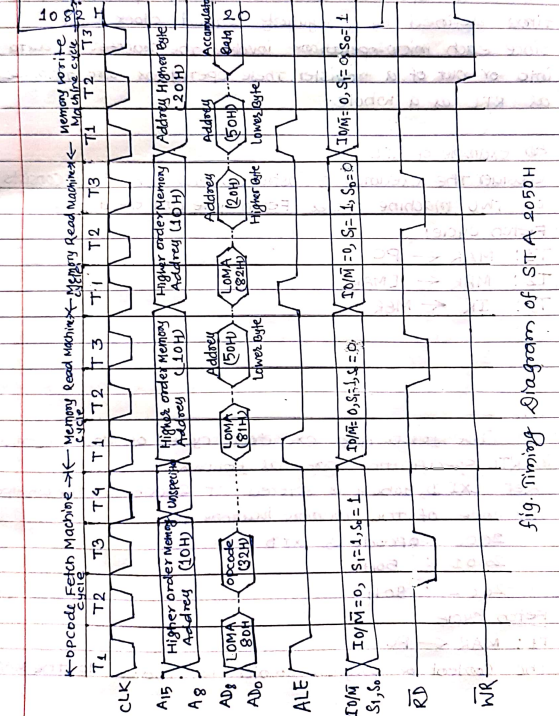 10
← Opcode Fetch Machine → ← Memory Read Machine × ← Memory Read Machine × ← Memory Write
cycle cycle cycle Machine cycle
T1 T2 T3 T4 T1 T2 T3 T1 T2 T3 T1 T2 T3
CLK
A15
A8
Higher order Memory
Address (10H)
Unspecific
Higher order Memory
Address (10H)
Higher order Memory
Address (10H)
Address Higher Byte
(20H)
AD8
AD0
LOMA
80H
opcode
(32H)
LOMA
(81H)
Address
(50H)
Lower Byte
LOMA
(82H)
Address
(20H)
Higher Byte
Address
(50H)
Lower Byte
Accumulator
Data
ALE
IO/M̅
S1, S0
IO/M̅ = 0, S1=1, S0=1
IO/M̅ = 0, S1=1, S=0
IO/M̅ = 0, S1=1, S0=0
IO/M̅ = 0, S1=0, S0=1
R̅D̅
W̅R̅
fig. Timing Diagram of STA 2050H